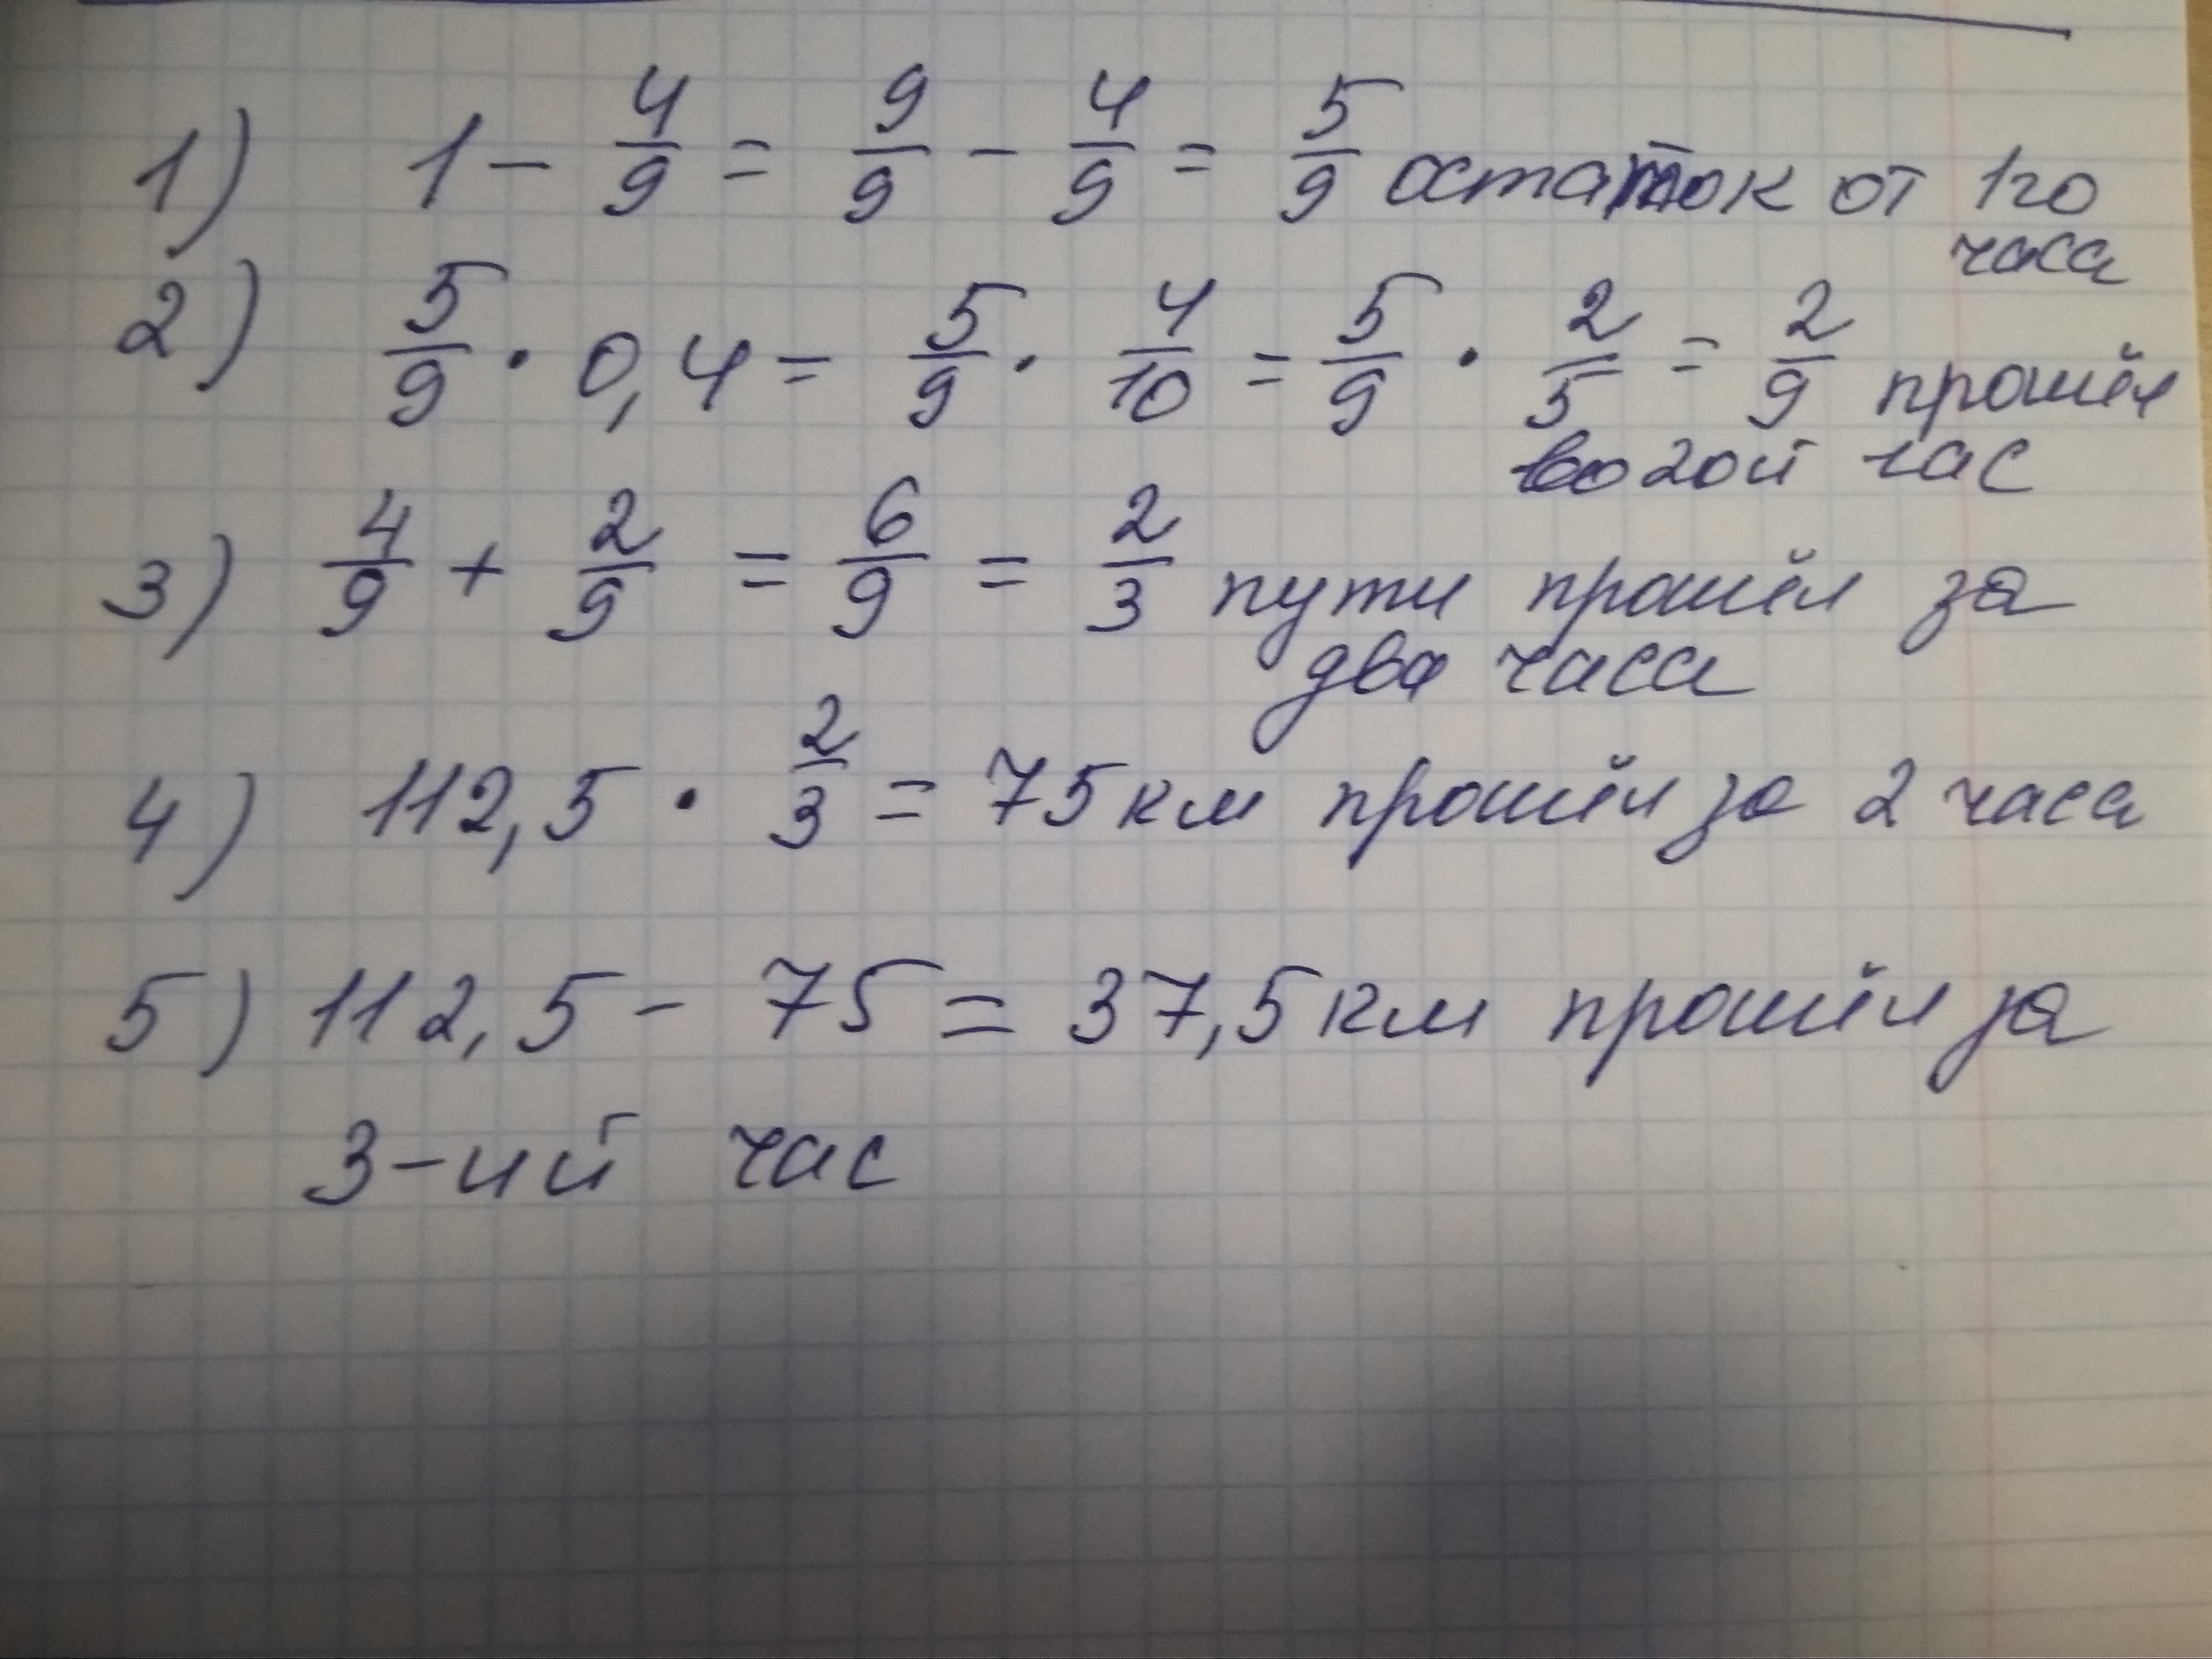 1) 1 - 4/9 = 9/9 - 4/9 = 5/9 остаток от 1го
часа
2) 5/9 · 0,4 = 5/9 · 4/10 = 5/9 · 2/5 = 2/9 прошёл
во 2ой час
3) 4/9 + 2/9 = 6/9 = 2/3 пути прошёл за
два часа
4) 112,5 · 2/3 = 75 км прошёл за 2 часа
5) 112,5 - 75 = 37,5 км прошёл за
3-ий час